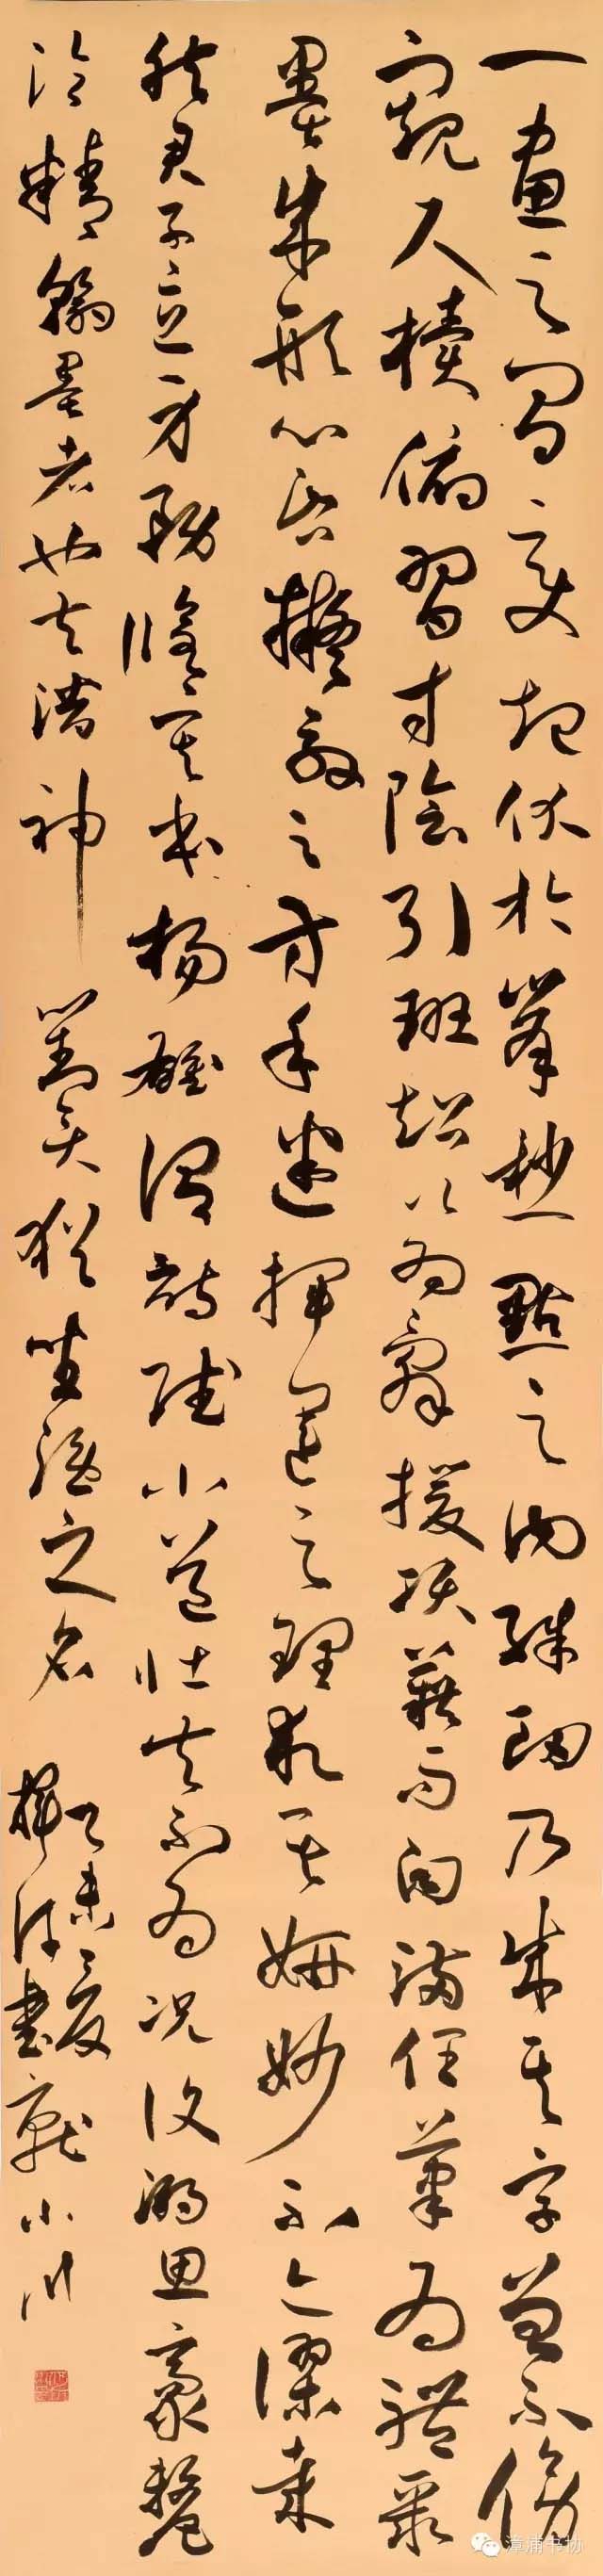 一畫之間變起伏於峯杪一點之內殊衄乃成其字曾不傍
窺尺牘俯習寸陰引班超以為辭援項籍而自滿任筆為體聚
墨成形心昏擬效之方手迷揮運之理求其妍妙不亦謬哉
然君子立身務修其本楊雄謂詩賦小道壯夫不為況復溺思豪氂
淪精翰墨者也夫潛神對弈猶坐隱之名
乙未之夏
揮汗書戴小川
漳浦书协